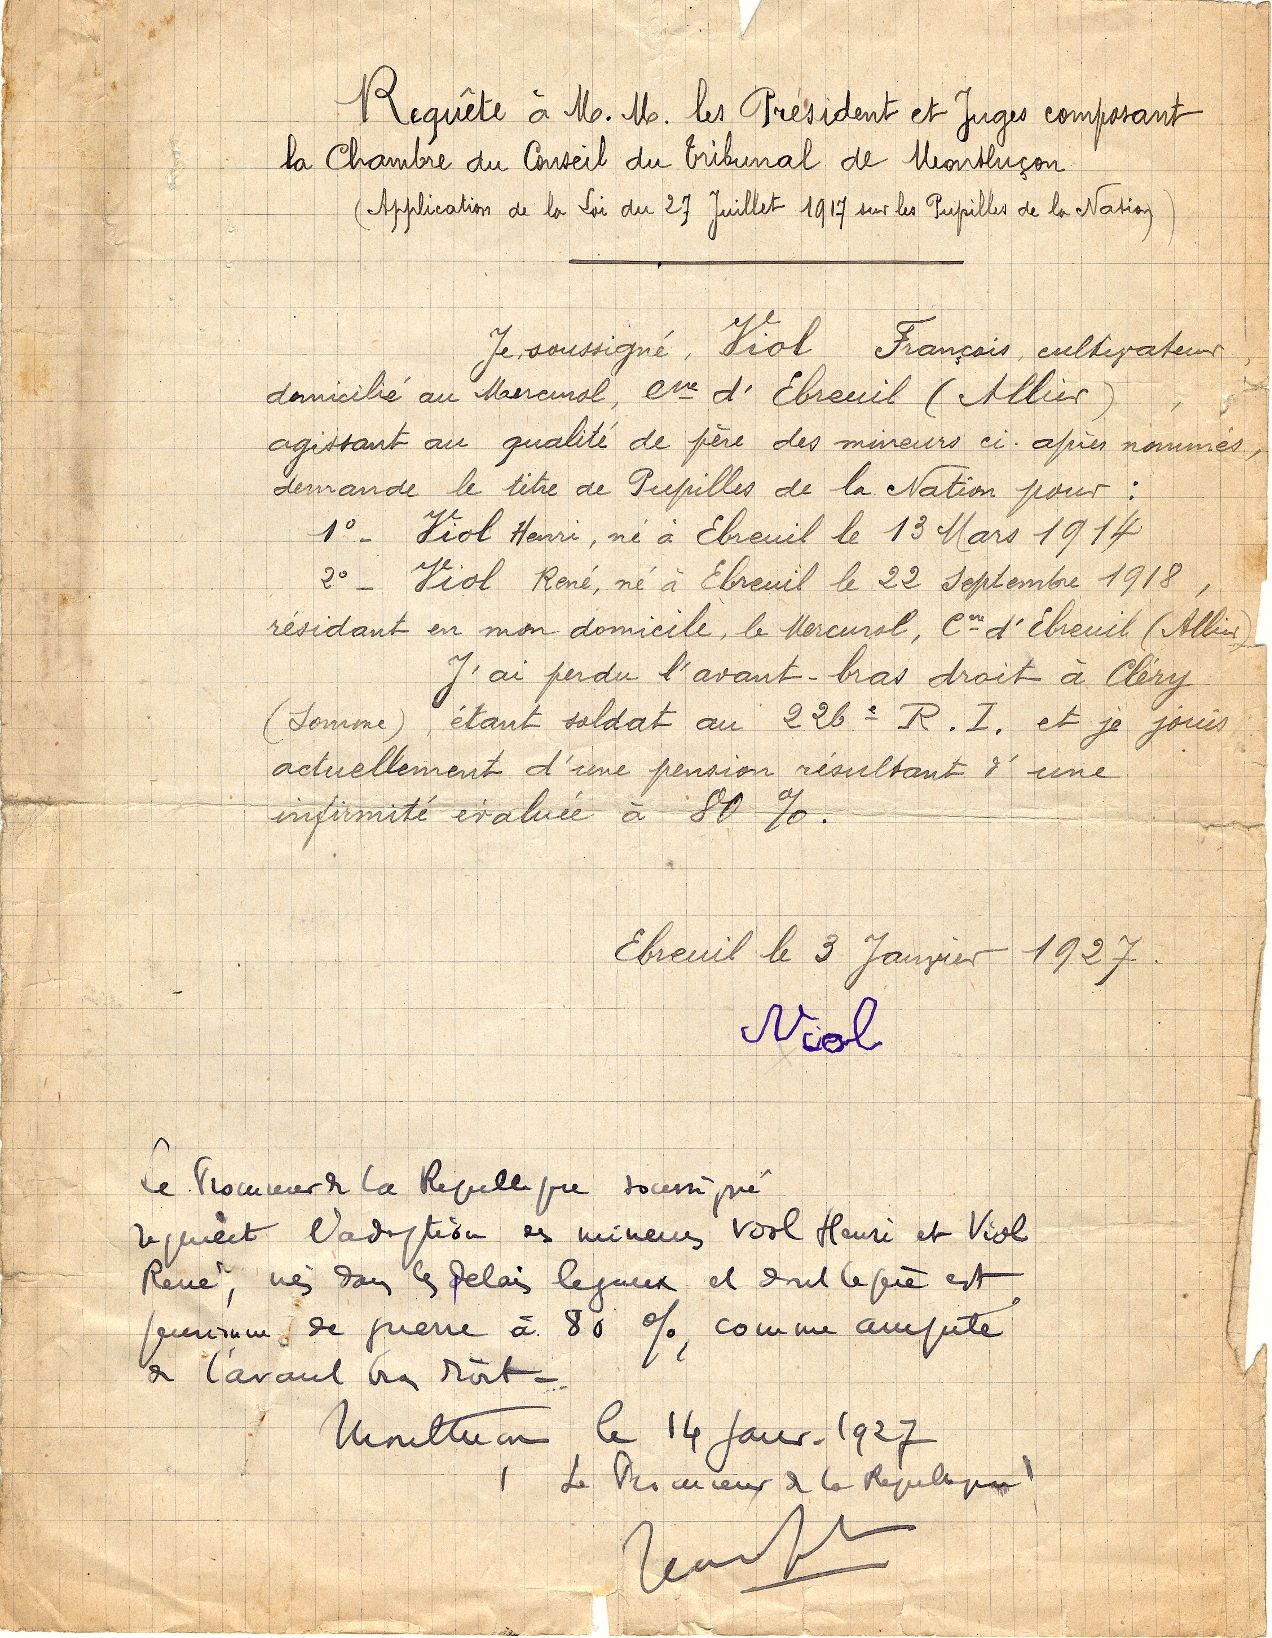 Requête à M. M. les Président et Juges composant
la Chambre du Conseil du Tribunal de Montluçon
(Application de la Loi du 27 Juillet 1917 sur les Pupilles de la Nation)
Je soussigné, Viol François, cultivateur,
domicilié au Mercurol, Cne d'Ebreuil (Allier),
agissant au qualité de père des mineurs ci-après nommés,
demande le titre de Pupilles de la Nation pour :
1° - Viol Henri, né à Ebreuil le 13 Mars 1914
2° - Viol René, né à Ebreuil le 22 Septembre 1918,
résidant en mon domicile, le Mercurol, Cne d'Ebreuil (Allier)
J'ai perdu l'avant-bras droit à Cléry
(Somme), étant soldat au 226e R.I. et je jouis
actuellement d'une pension résultant d'une
infirmité évaluée à 80 %.
Ebreuil le 3 Janvier 1927.
Viol
Le Procureur de la République soussigné
requiert l'adoption des mineurs Viol Henri et Viol
René, nés dans les délais légaux et dont le père est
pensionné de guerre à 80 %, comme amputé
de l'avant bras droit -
Montluçon le 14 Janv. 1927
Le Procureur de la République